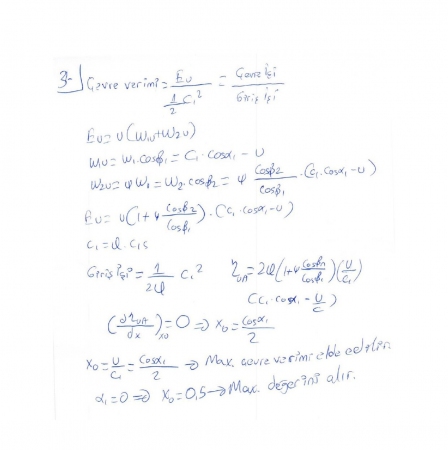 3-) Çevre verimi = Eu / (1/2 C₁²) = Çevre İşi / Giriş İşi
Eu = U (W₁u + W₂u)
W₁u = W₁. Cosβ₁ = C₁. Cosα₁ - U
W₂u = ψ W₁ = W₂. cosβ₂ = ψ Cosβ₂ / Cosβ₁ . (C₁. Cosα₁ - U)
Eu = U (1 + ψ Cosβ₂ / Cosβ₁) . (C₁. Cosα₁ - U)
C₁ = φ. C₁s
Giriş İşi = 1 / 2φ C₁² η = 2φ (1 + ψ Cosβ₂ / Cosβ₁) (U / C₁)
(C₁. Cosα₁ - U / C)
(dη / dx)x₀ = 0 ⇒ X₀ = Cosα₁ / 2
X₀ = U / C₁ = Cosα₁ / 2 → Max. çevre verimi elde edilir.
α₁ = 0 ⇒ X₀ = 0,5 → Max. değerini alır.